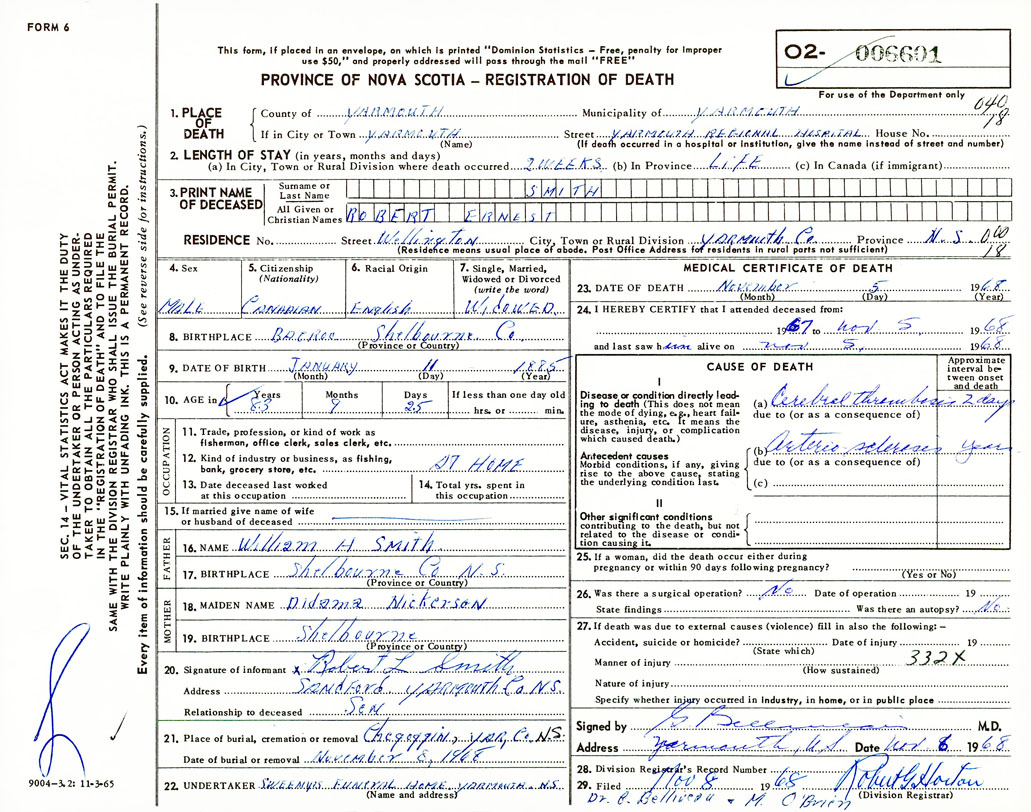 FORM 6
This form, if placed in an envelope, on which is printed "Dominion Statistics – Free, penalty for improper
use $50," and properly addressed will pass through the mail "FREE"
PROVINCE OF NOVA SCOTIA – REGISTRATION OF DEATH
02- 006601
For use of the Department only
040
18
1. PLACE OF DEATH
County of YARMOUTH Municipality of YARMOUTH
If in City or Town YARMOUTH Street YARMOUTH REGIONAL HOSPITAL House No.
(Name) (If death occurred in a hospital or institution, give the name instead of street and number)
2. LENGTH OF STAY (in years, months and days)
(a) In City, Town or Rural Division where death occurred 2 WEEKS (b) In Province LIFE (c) In Canada (if immigrant)
3. PRINT NAME OF DECEASED
Surname or Last Name SMITH
All Given or Christian Names ROBERT ERNEST
RESIDENCE No. Street Wellington City, Town or Rural Division YARMOUTH Co. Province N.S. 000
(Residence means usual place of abode. Post Office Address for residents in rural parts not sufficient) 18
4. Sex
MALE
5. Citizenship
(Nationality)
CANADIAN
6. Racial Origin
English
7. Single, Married,
Widowed or Divorced
(write the word)
WIDOWED
8. BIRTHPLACE Shelbourne Co.
(Province or Country)
9. DATE OF BIRTH JANUARY 11 1885
(Month) (Day) (Year)
10. AGE in Years Months Days If less than one day old
83 9 25 hrs. or min.
OCCUPATION
11. Trade, profession, or kind of work as
fisherman, office clerk, sales clerk, etc.
12. Kind of industry or business, as fishing,
bank, grocery store, etc. AT HOME
13. Date deceased last worked
at this occupation
14. Total yrs. spent in
this occupation
15. If married give name of wife
or husband of deceased
FATHER
16. NAME William H SMITH
17. BIRTHPLACE Shelbourne Co N.S.
(Province or Country)
MOTHER
18. MAIDEN NAME Didama Nickerson
19. BIRTHPLACE Shelbourne
(Province or Country)
20. Signature of informant x Robert L Smith
Address SANDFORD YARMOUTH Co N.S.
Relationship to deceased SON
21. Place of burial, cremation or removal Chegoggin, YAR, Co. N.S.
Date of burial or removal November 8, 1968
22. UNDERTAKER SWEENYS FUNERAL HOME, YARMOUTH N.S.
(Name and address)
MEDICAL CERTIFICATE OF DEATH
23. DATE OF DEATH November 5 1968
(Month) (Day) (Year)
24. I HEREBY CERTIFY that I attended deceased from:
1967 to Nov 5, 1968
and last saw him alive on Nov 5, 1968
CAUSE OF DEATH
Approximate interval between onset and death
I
Disease or condition directly leading to death (This does not mean
the mode of dying, e.g., heart failure, asthenia, etc. It means the
disease, injury, or complication
which caused death.)
(a) Cerebral thrombosis 2 days
due to (or as a consequence of)
Antecedent causes
Morbid conditions, if any, giving
rise to the above cause, stating
the underlying condition last.
(b) Arterio sclerosis years
due to (or as a consequence of)
(c)
II
Other significant conditions
contributing to the death, but not
related to the disease or condition causing it.
25. If a woman, did the death occur either during
pregnancy or within 90 days following pregnancy?
(Yes or No)
26. Was there a surgical operation? No Date of operation 19
State findings Was there an autopsy? No
27. If death was due to external causes (violence) fill in also the following: –
Accident, suicide or homicide? Date of injury 19
(State which)
Manner of injury 332X
(How sustained)
Nature of injury
Specify whether injury occurred in industry, in home, or in public place
Signed by M.D.
Address Yarmouth, N.S Date Nov 8 1968
28. Division Registrar's Record Number
29. Filed Nov 8 1968 Robert G Horton
(Division Registrar)
Dr. B. Belliveau + M. O'Brien
SEC. 14 – VITAL STATISTICS ACT MAKES IT THE DUTY
OF THE UNDERTAKER OR PERSON ACTING AS UNDER-
TAKER TO OBTAIN ALL THE PARTICULARS REQUIRED
IN THE "REGISTRATION OF DEATH" AND TO FILE THE
SAME WITH THE DIVISION REGISTRAR WHO SHALL ISSUE THE BURIAL PERMIT.
WRITE PLAINLY WITH UNFADING INK. THIS IS A PERMANENT RECORD.
Every item of information should be carefully supplied. (See reverse side for instructions.)
9004-3.2: 11-3-65